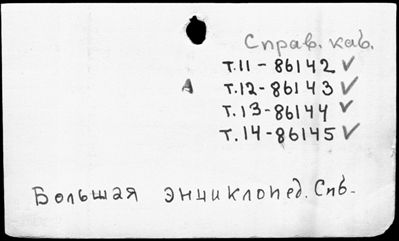 Справ. каб.
т.11-86142 ✓
А т.12-86143 ✓
т.13-86144 ✓
т.14-86145 ✓
Большая энциклопед. Спб.